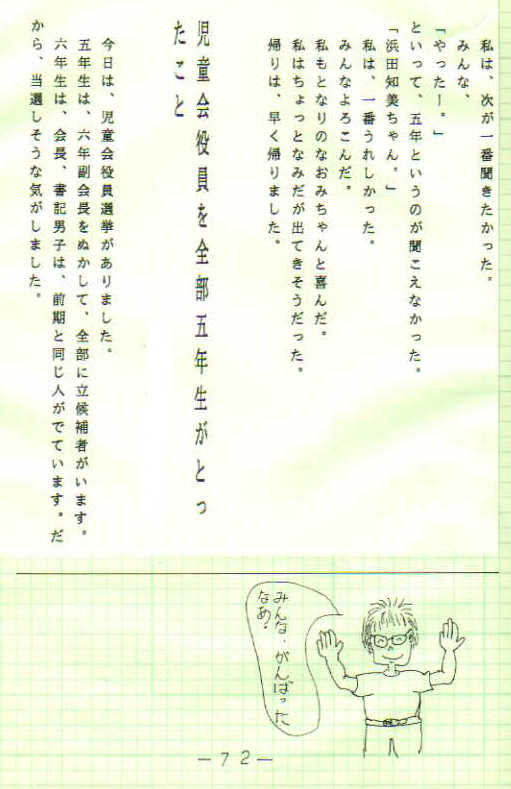 私は、次が一番聞きたかった。
みんな、
「やったー。」
といって、五年というのが聞こえなかった。
「浜田知美ちゃん。」
私は、一番うれしかった。
みんなよろこんだ。
私もとなりのなおみちゃんと喜んだ。
私はちょっとなみだが出てきそうだった。
帰りは、早く帰りました。
児童会役員を全部五年生がとっ
たこと
今日は、児童会役員選挙がありました。
五年生は、六年副会長をぬかして、全部に立候補者がいます。
六年生は、会長、書記男子は、前期と同じ人がでています。だ
から、当選しそうな気がしました。
みんな、がんばった
なあ。
－７２－